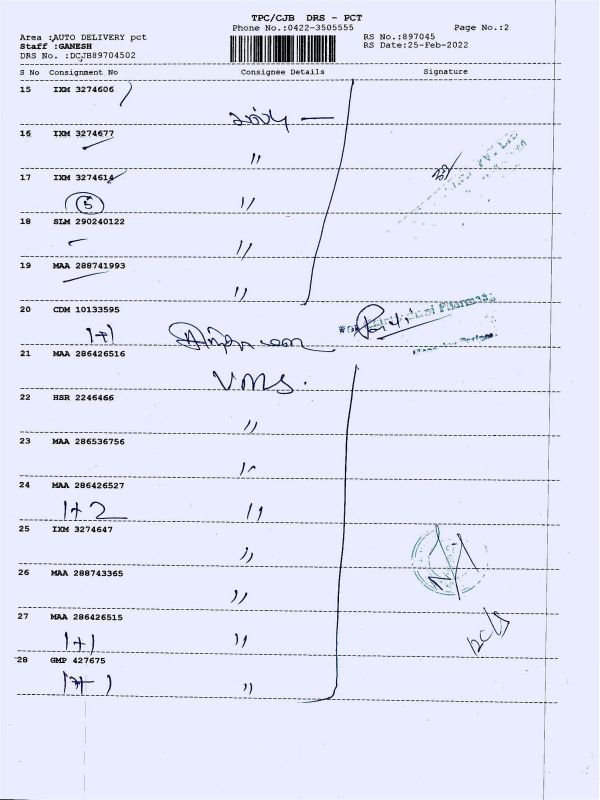 TPC/CJB DRS - PCT
Phone No.:0422-3505555
Page No.:2
Area :AUTO DELIVERY pct
Staff :GANESH
DRS No. :DCJB89704502
RS No.:897045
RS Date:25-Feb-2022
S No Consignment No Consignee Details Signature
15 IXM 3274606
16 IXM 3274677
"
17 IXM 3274614
5 "
18 SLM 290240122
"
19 MAA 288741993
"
20 CDM 10133595
1+1
21 MAA 286426516
VMS.
22 HSR 2246466
"
23 MAA 286536756
"
24 MAA 286426527
1+2 "
25 IXM 3274647
"
26 MAA 288743365
"
27 MAA 286426515
1+1 "
28 GMP 427675
"